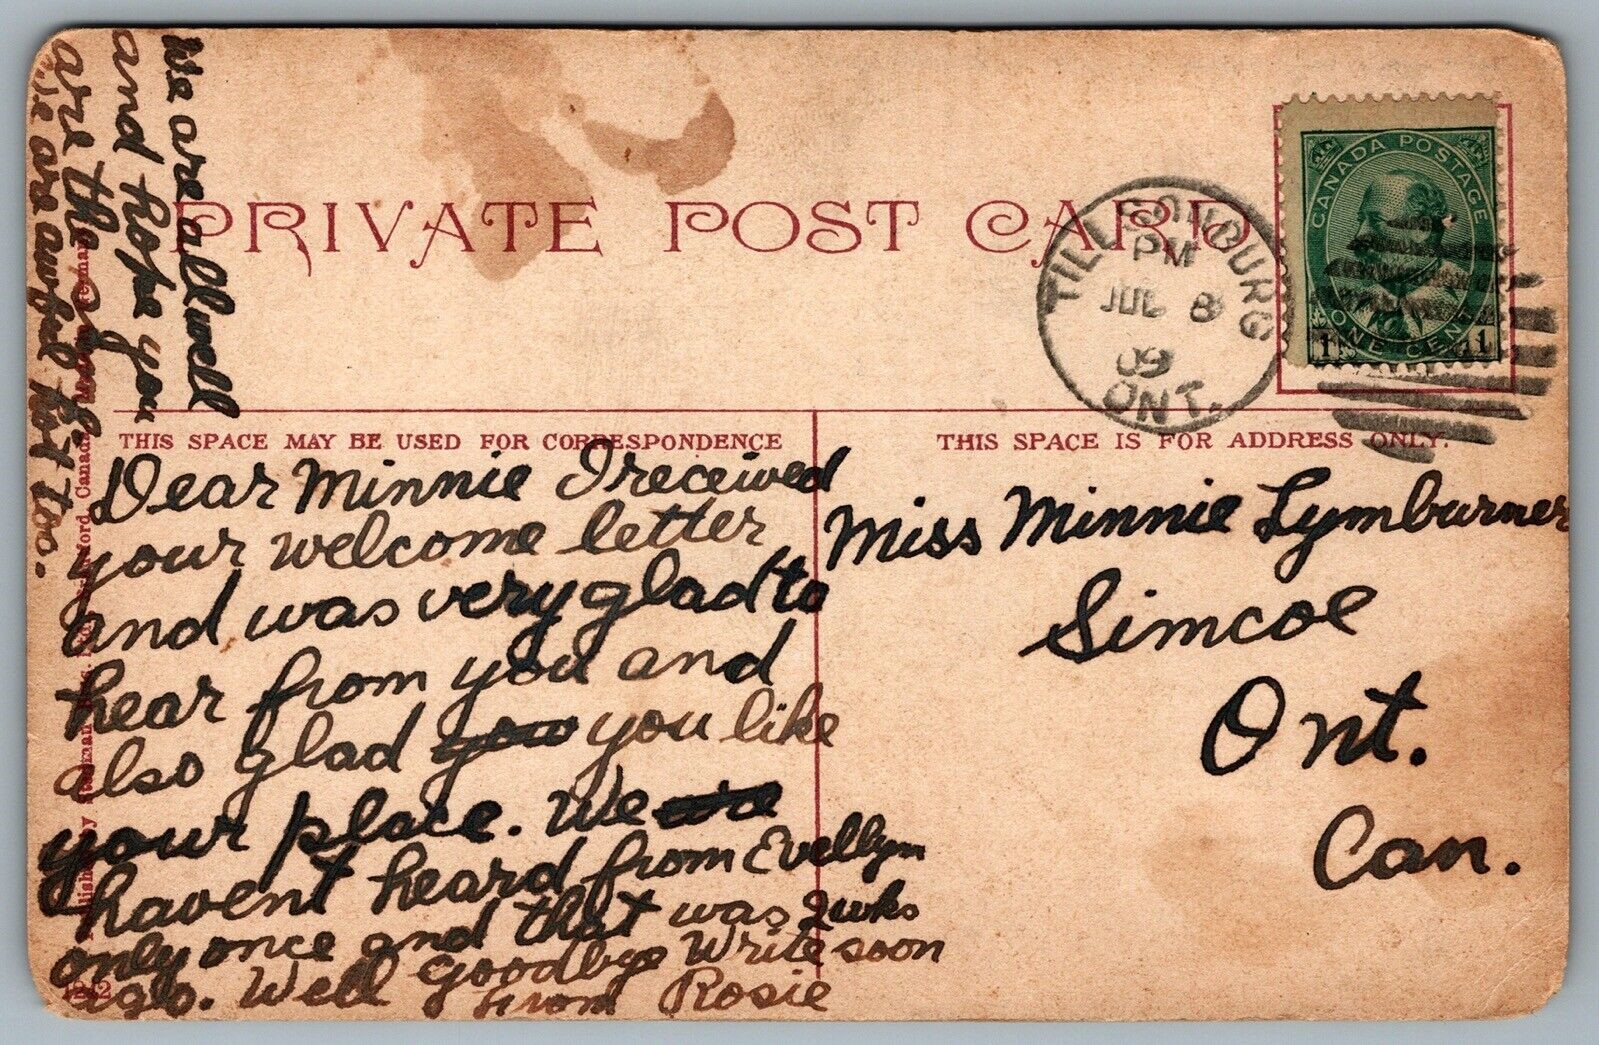 We are all well
and hope you
are the
we are awful hot too.
PRIVATE POST CARD
TILLSONBURG
PM
JUL 8
09
ONT.
CANADA POSTAGE
1 ONE CENT 1
THIS SPACE MAY BE USED FOR CORRESPONDENCE
THIS SPACE IS FOR ADDRESS ONLY.
Dear Minnie I received
your welcome letter
and was very glad to
hear from you and
also glad you you like
your place. We are
havent heard from Evellym
only once and that was 2 wks
ago. Well goodbye Write soon
from Rosie
Miss Minnie Lymburner
Simcoe
Ont.
Can.